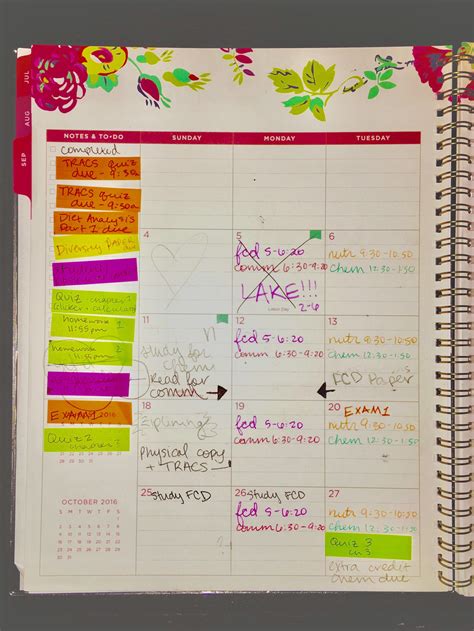 JUL
AUG
SEP
NOTES & TO-DO
SUNDAY
MONDAY
TUESDAY
completed
TRACS quiz
due - 9:30a
TRACS quiz
due - 9:30a
Diet Analysis
Part 1 due
Diversity
Quiz chapter
Homework 1
11:55pm
homework 2
EXAM 1 2016
Quiz 2
chapter 3
OCTOBER 2016
S M T W T F S
4
5
fcd 5-6:20
comm 6:30-9:20
LAKE!!!
2-6
Labor Day
6
nutr 9:30-10:50
chem 12:30-1:50
11
study for
chem
Read for
comm
12
fcd 5-6:20
comm 6:30-9:20
13
nutr 9:30-10:50
chem 12:30-1:50
FCD Paper
18
Physical copy
+ TRACS
19
fcd 5-6:20
comm 6:30-9:20
20 EXAM 1
nutr 9:30-10:50
chem 12:30-1:50
25 Study FCD
26 Study FCD
fcd 5-6:20
comm 6:30-9:20
27
nutr 9:30-10:50
chem 12:30-1:50
Quiz 3
ch 3
extra credit
chem due